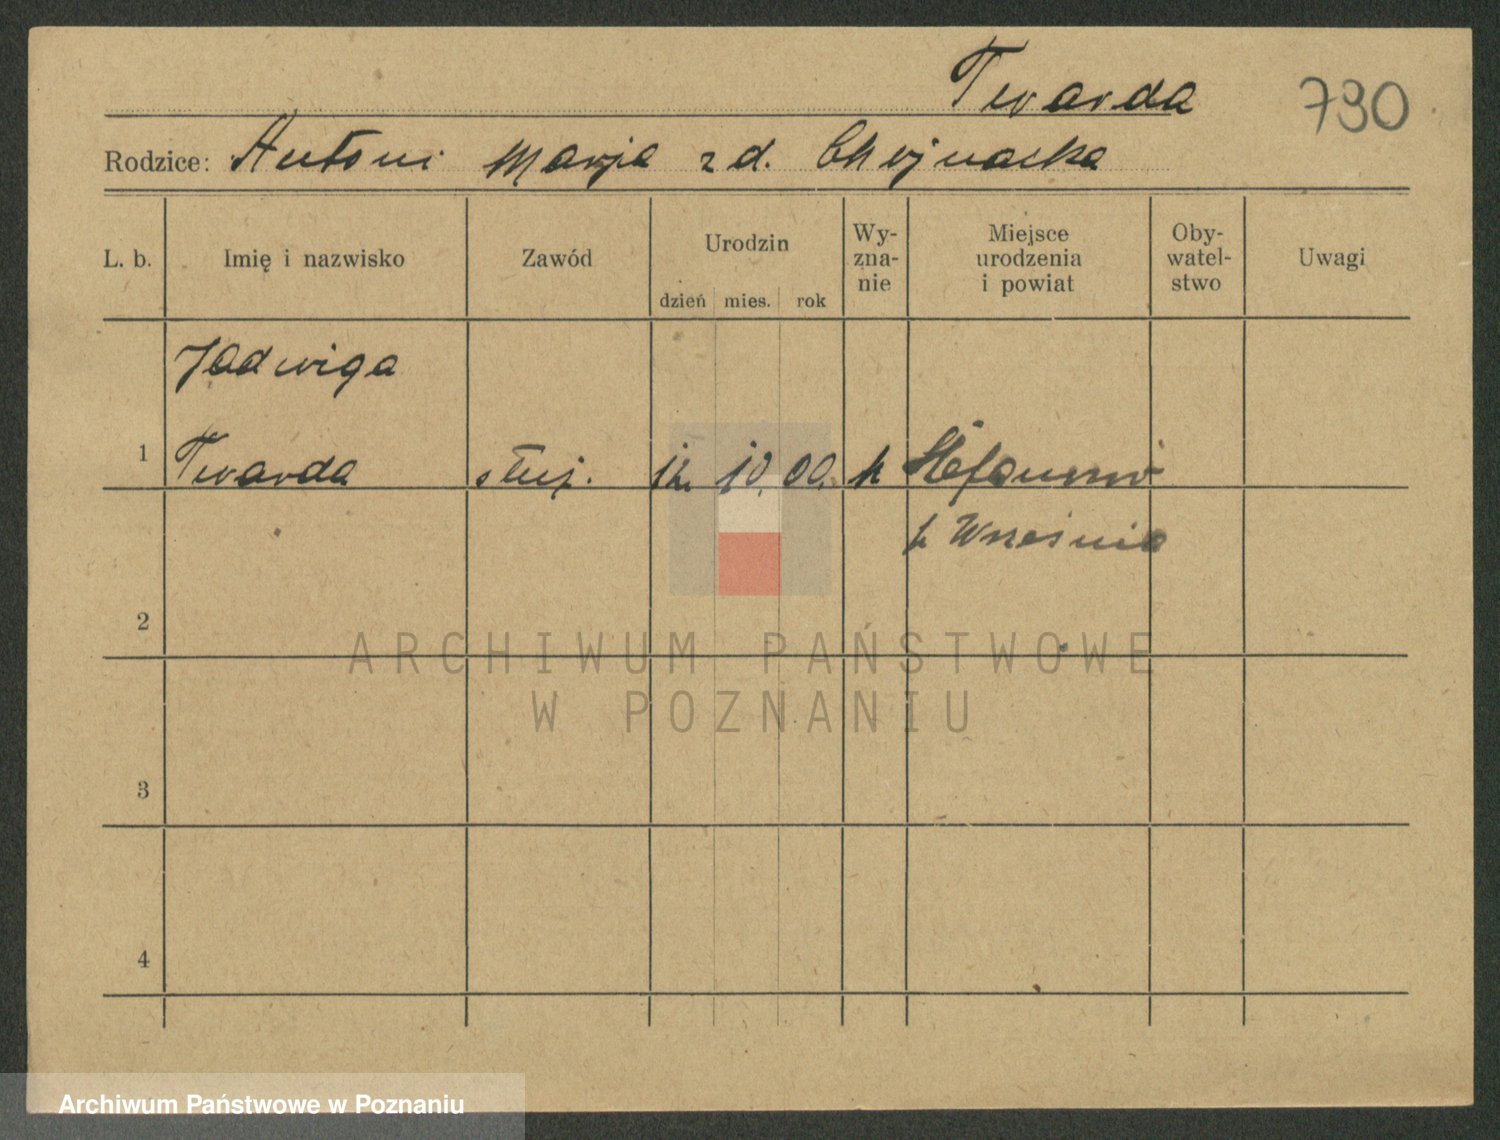 Twarda
790
Rodzice: Antoni Marja z d. Chojnacka
L. b. Imię i nazwisko Zawód Urodzin dzień mies. rok Wy-zna-nie Miejsce urodzenia i powiat Oby-watel-stwo Uwagi
Jadwiga
1 Twarda służ. 10. 00. k
p Września
2
ARCHIWUM PAŃSTWOWE
W POZNANIU
3
4
Archiwum Państwowe w Poznaniu